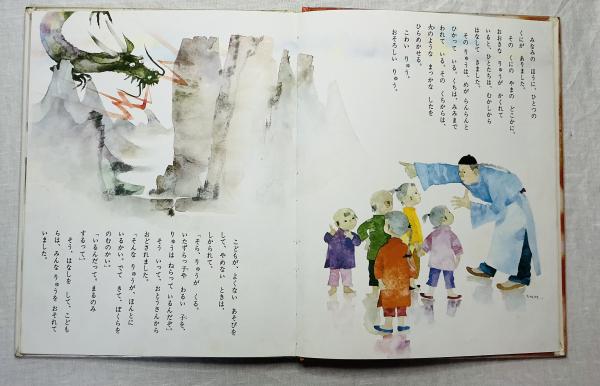 みなみの ほうに、ひとつの
くにが ありました。
その くにの やまの どこかに、
おおきな りゅうが かくれて
いると、ひとたちは、むかしから
はなして きました。
その りゅうは、めが らんらんと
ひかって いる。くちは、みみまで
われて いる。その くちからは、
火のような まっかな したを
ひらめかせる。
こわい りゅう。
おそろしい りゅう。
こどもが、よくない あそびを
して、やめない ときは、
しかられて、
「そら、りゅうが くる。
いたずらっ子や わるい 子を、
りゅうは ねらって いるんだぞ。」
そう いって、おとうさんから
おどされました。
「そんな りゅうが、ほんとに
いるかい。でて きて、ぼくらを
のむのかい。」
「いるんだって。まるのみ
するって。」
そう はなしを して、こども
らは、みんな りゅうを おそれて
いました。